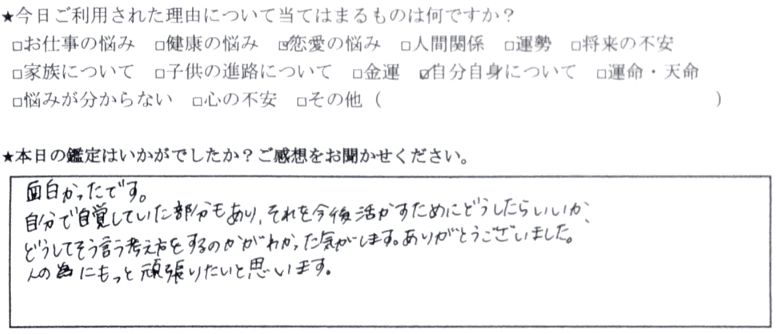 ★今日ご利用された理由について当てはまるものは何ですか？
□お仕事の悩み □健康の悩み ☑恋愛の悩み □人間関係 □運勢 □将来の不安
□家族について □子供の進路について □金運 ☑自分自身について □運命・天命
□悩みが分からない □心の不安 □その他（ ）
★本日の鑑定はいかがでしたか？ご感想をお聞かせください。
面白かったです。
自分で自覚していた部分もあり、それを今後活かすためにどうしたらいいか、
どうしてそう言う考え方をするのかがわかった気がします。ありがとうございました。
人の為にもっと頑張りたいと思います。